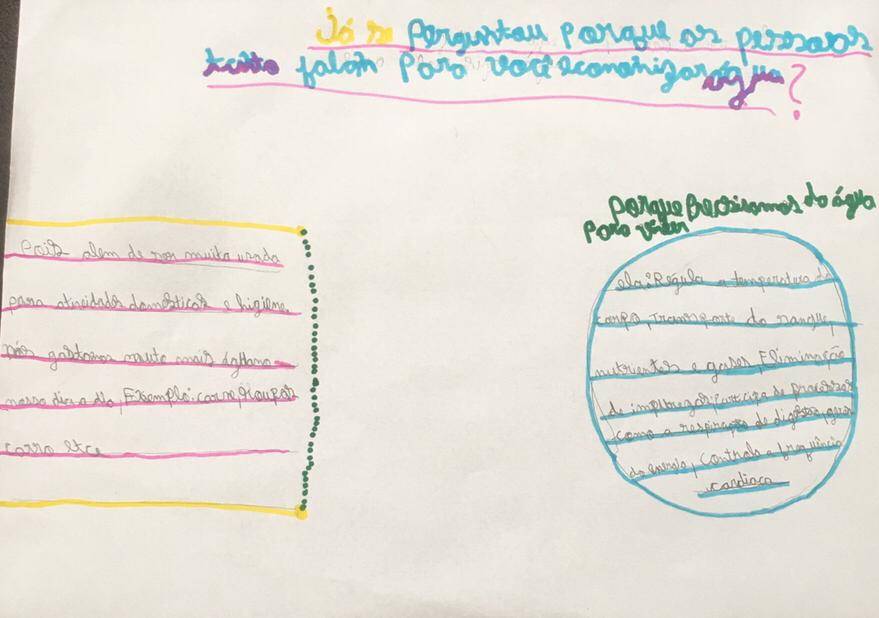 Já se perguntou porque as pessoas
tanto falam para você economizar água?
Pois alem de ser muito usada
para atividades domésticas e higiene
nós gastamos muito mais água no
nosso dia a dia, Exemplo: carne, roupas
carro etc.
porque precisamos da água
para viver
ela: Régula a temperatura do
corpo, Transporte do sangue,
nutrientes e gases, Eliminação
de impurezas, participa de processos
como a respiração de digestão, geração
de energia, Controla a frequência
cardiaca